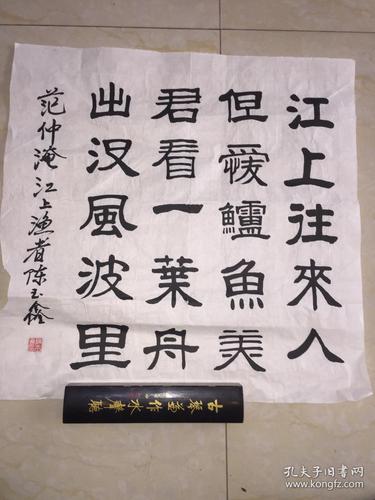 江上往來人
但愛鱸魚美
君看一葉舟
出没風波里
范仲淹江上漁者陈玉鑫
古琴作水聲聽
孔夫子旧书网
www.kongfz.com